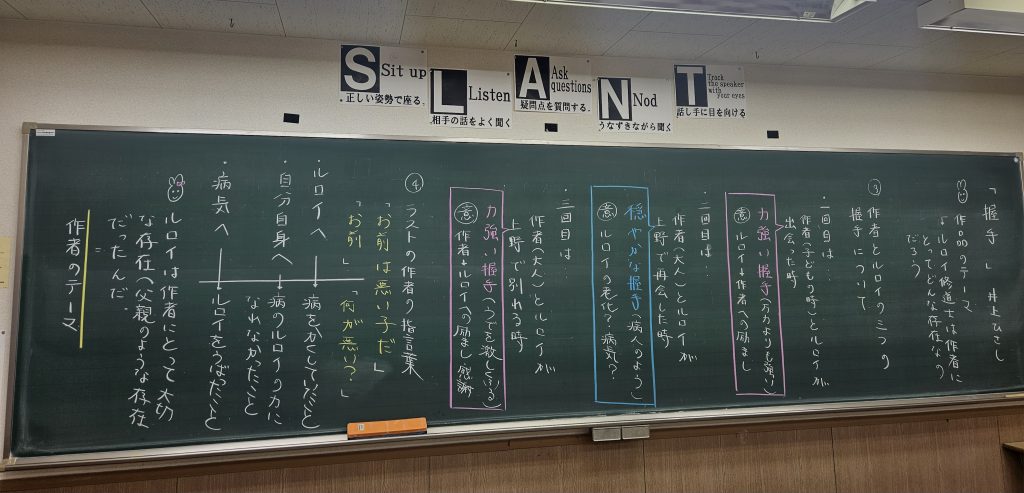 S Sit up
正しい姿勢で座る。
L Listen
相手の話をよく聞く
A Ask questions
疑問点を質問する。
N Nod
うなずきながら聞く
T Track the speaker with your eyes
話し手に目を向ける
「握手」 井上ひさし
作品のテーマ
「ルロイ修道士は作者に
とってどんな存在なの
だろう
③
作者とルロイの三つの
握手について
・一回目は…
作者(子どもの時)とルロイが
出会った時
力強い握手(万力よりも強い)
意 ルロイ→作者への励まし
・二回目は…
作者(大人)とルロイが
上野で再会した時
穏やかな握手(病人のよう)
意 ルロイの老化?病気?
・三回目は…
作者(大人)とルロイが
上野で別れる時
力強い握手(うでを激しくふる)
意 作者→ルロイへの励まし感謝
④
ラストの作者の指言葉
「お前は悪い子だ」
「お前」「何が悪い?」
・ルロイへ
病をかくしていたこと
・自分自身へ
病のルロイの力に
なれなかったこと
・病気へ
ルロイをうばったこと
ルロイは作者にとって大切
な存在(父親のような存在
だったんだ
=
作者のテーマ